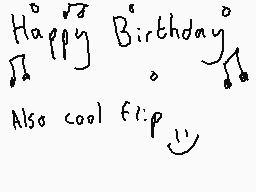 Happy Birthday
Also cool flip